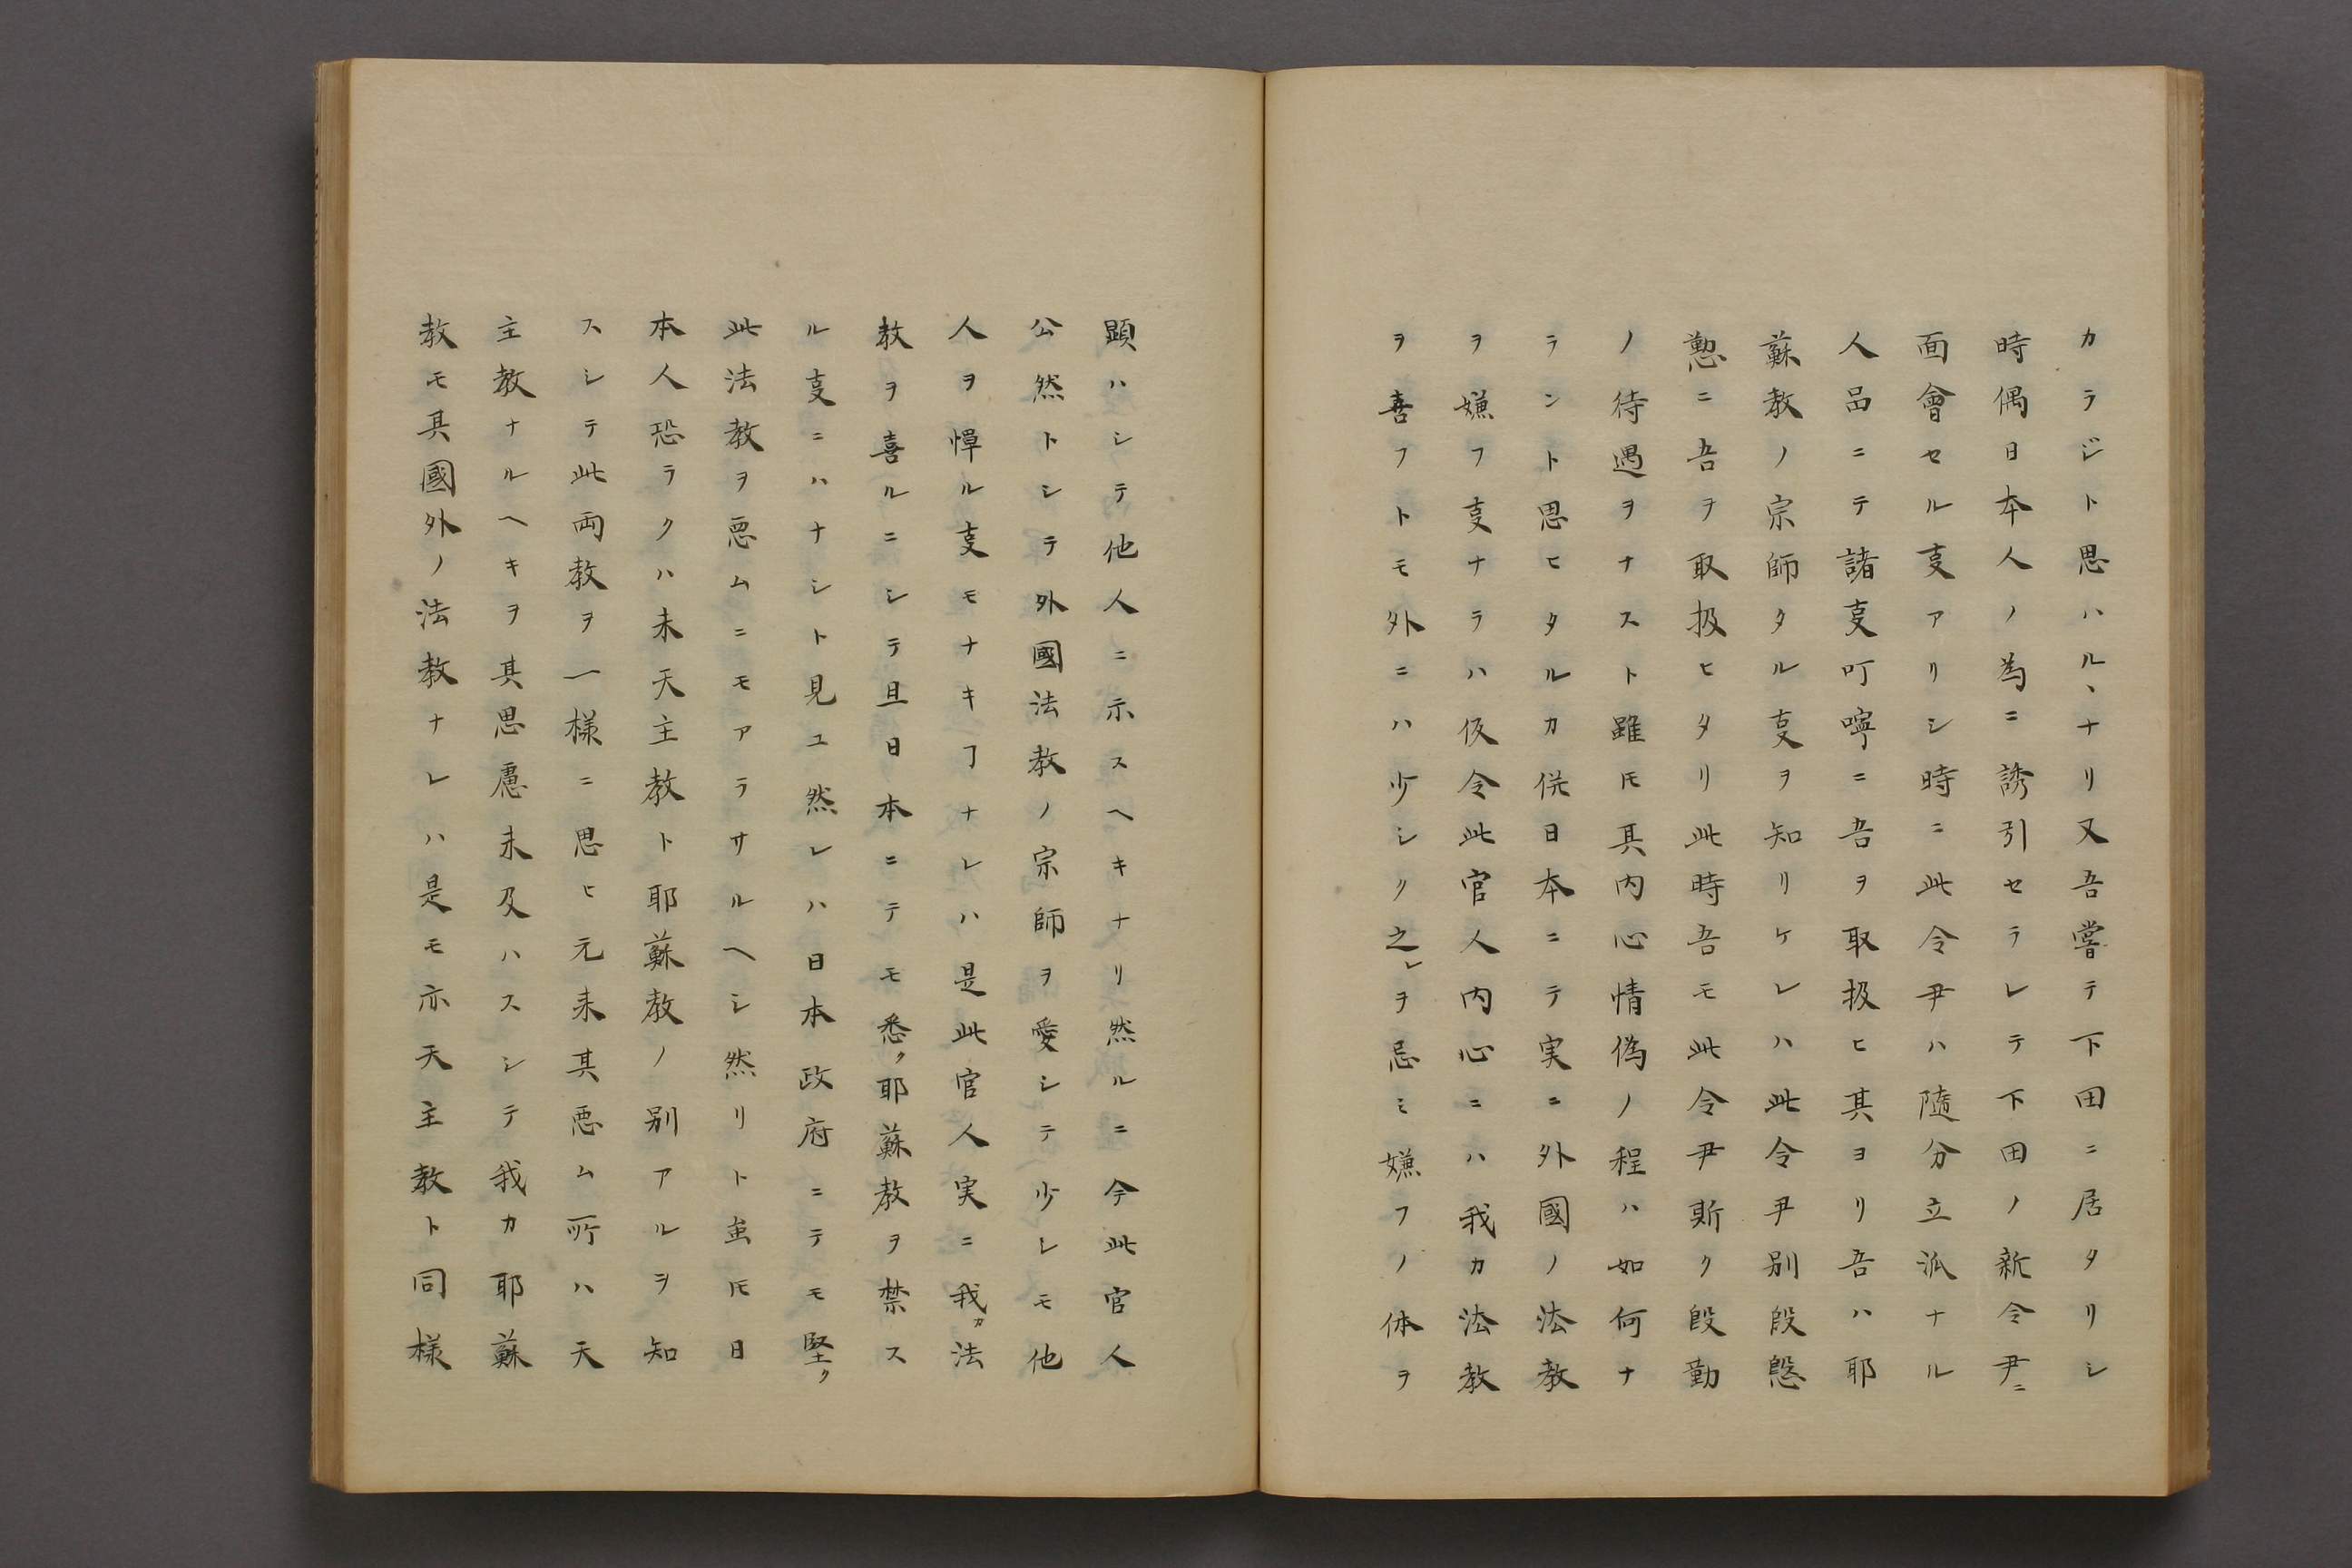 カラジト思ハルヽナリ又吾嘗テ下田ニ居タリシ
時偶日本人ノ為ニ誘引セラレテ下田ノ新令尹ニ
面會セル叓アリシ時ニ此令尹ハ隨分立派ナル
人品ニテ諸叓叮嚀ニ吾ヲ取扱ヒ其ヨリ吾ハ耶
蘇教ノ宗師タル叓ヲ知リケレハ此令尹別段慇
懃ニ吾ヲ取扱ヒタリ此時吾モ此令尹斯ク殷勤
ノ待遇ヲナスト雖𪜈其内心情偽ノ程ハ如何ナ
ラント思ヒタルカ併日本ニテ実ニ外國ノ法教
ヲ嫌フ叓ナラハ仮令此官人内心ニハ我カ法教
ヲ喜フトモ外ニハ少シク之レヲ忌ミ嫌フノ体ヲ
顕ハシテ他人ニ示スヘキナリ然ルニ今此官人
公然トシテ外國法教ノ宗師ヲ愛シテ少シモ他
人ヲ憚ル叓モナキヿナレハ是此官人実ニ我カ法
教ヲ喜ルニシテ且日本ニテモ悉ク耶蘇教ヲ禁ス
ル叓ニハナシト見ユ然レハ日本政府ニテモ堅ク
此法教ヲ悪ムニモアラサルヘシ然リト虽𪜈日
本人恐ラクハ未天主教ト耶蘇教ノ別アルヲ知
スシテ此両教ヲ一様ニ思ヒ元来其悪ム所ハ天
主教ナルヘキヲ其思慮未及ハスシテ我カ耶蘇
教モ其國外ノ法教ナレハ是モ亦天主教ト同様